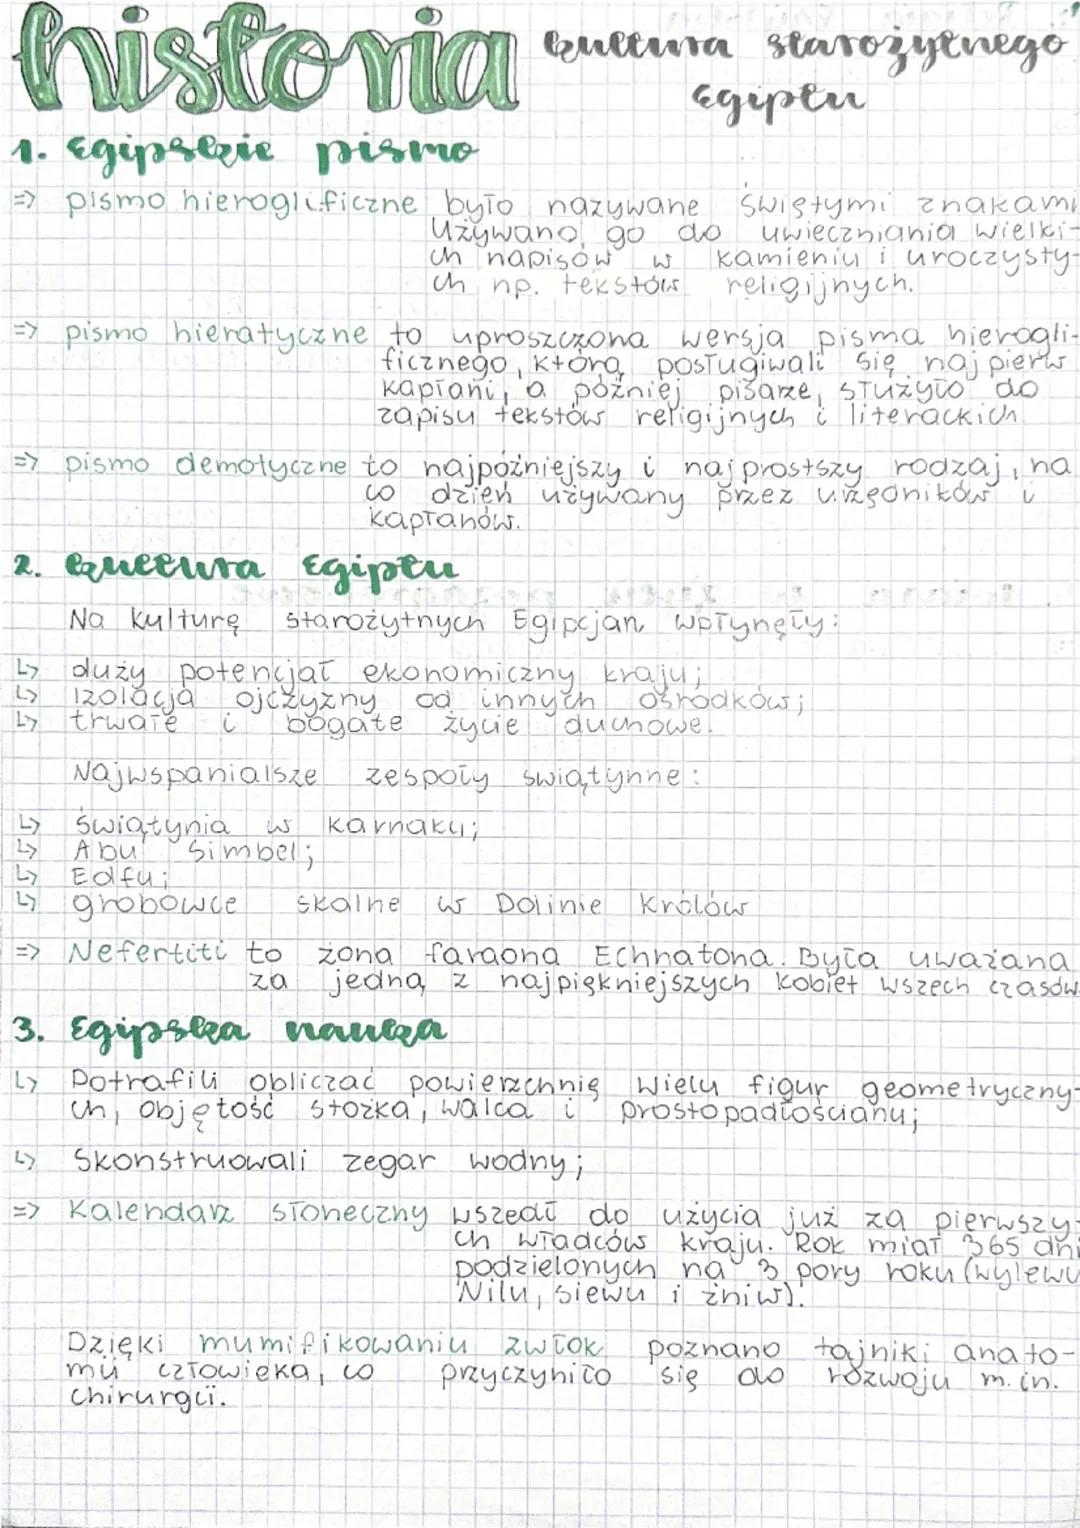 historia kultura starożytnego
Egiptu
1. Egipskie pismo
=> pismo hieroglificzne było nazywane świętymi znakami
Używano go do uwieczniania wielki-
ch napisów w kamieniu i uroczysty-
ch np. tekstów religijnych.
=> pismo hieratyczne to uproszczona wersja pisma hierogli-
ficznego, którą posługiwali się najpierw
kapłani, a później pisarze, służyło do
zapisu tekstów religijnych i literackich
=> pismo demotyczne to najpóźniejszy i najprostszy rodzaj, na
co dzień używany przez urzędników i
kapłanów.
2. kultura Egiptu
Na kulturę starożytnych Egipcjan wpłynęły:
↳ duży potencjał ekonomiczny kraju;
↳ izolacja ojczyzny od innych ośrodków;
↳ trwałe i bogate życie duchowe.
Najwspanialsze zespoły świątynne:
↳ świątynia w Karnaku;
↳ Abu Simbel;
↳ Edfu;
↳ grobowce skalne w Dolinie Królów
=> Nefertiti to żona faraona Echnatona. Była uważana
za jedną z najpiękniejszych kobiet wszech czasów.
3. Egipska nauka
↳ Potrafili obliczać powierzchnię wielu figur geometryczny-
ch, objętość stożka, walca i prostopadłościanu;
↳ Skonstruowali zegar wodny;
=> Kalendarz słoneczny wszedł do użycia już za pierwszy-
ch władców kraju. Rok miał 365 dni
podzielonych na 3 pory roku (wylewu
Nilu, siewu i żniw).
Dzięki mumifikowaniu zwłok poznano tajniki anato-
mii człowieka, co przyczyniło się do rozwoju m.in.
chirurgii.